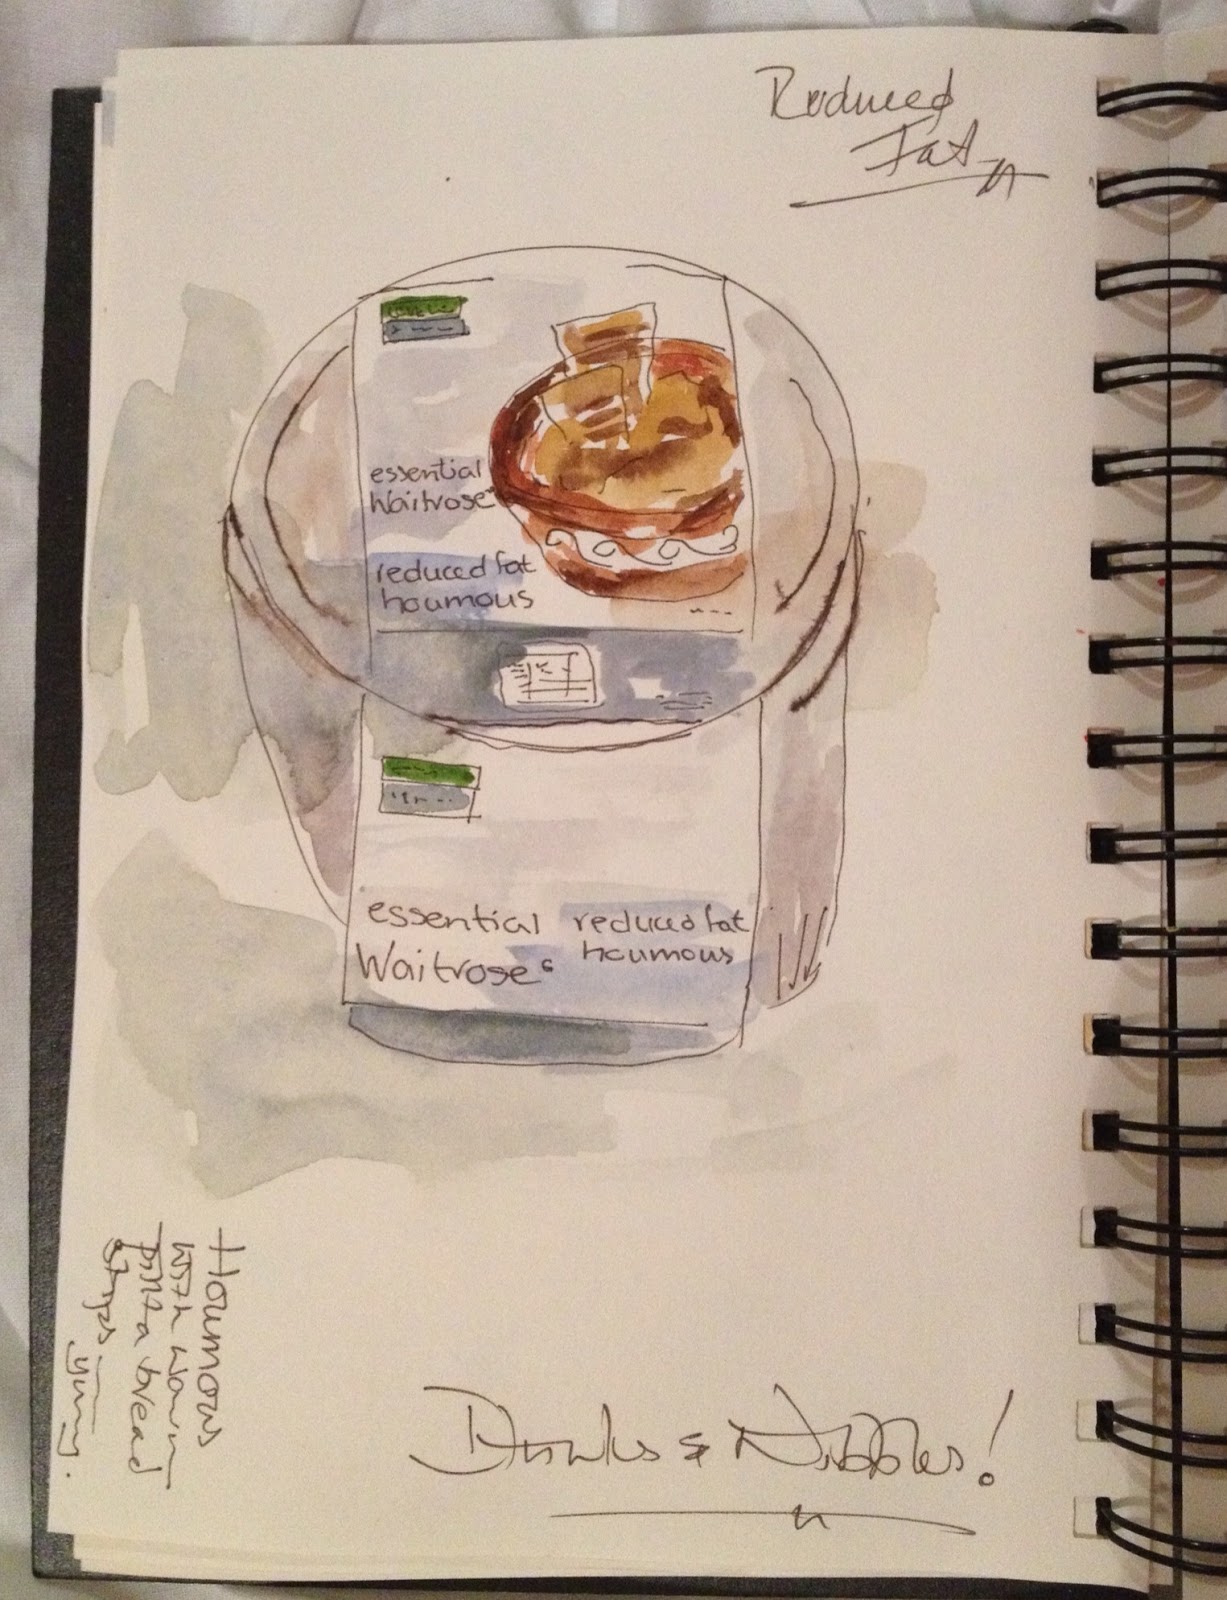 Reduced
Fat
essential
Waitrose
reduced fat
houmous
essential
Waitrose
reduced fat
houmous
Houmous
with warm
pitta bread
strips
yummy.
Drinks & Nibbles!